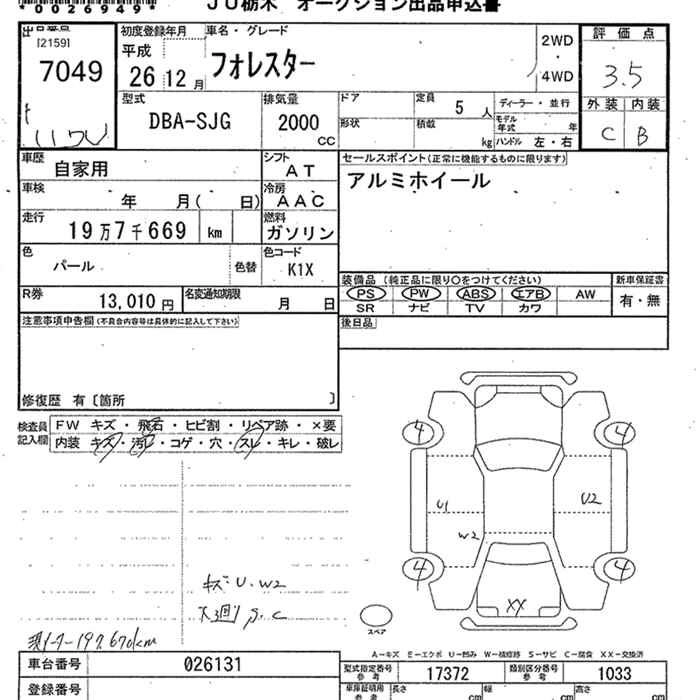 *0026949*
JU栃木 オークション出品申込書
[2159]
7049
初度登録年月
平成
26 12 月
車名・グレード
フォレスター
2WD
4WD
評価点
3.5
外装 内装
C B
型式
DBA-SJG
排気量
2000
CC
ドア
形状
定員
5 人
積載
kg
ディーラー・並行
モデル
年式
年
ハンドル 左・右
車歴
自家用
シフト
AT
車検
年 月( 日)
冷房
AAC
走行
19万7千669
km
燃料
ガソリン
色
パール
色替
色コード
K1X
R券
13,010 円
名変通知期限
月 日
セールスポイント(正常に機能するものに限ります)
アルミホイール
装備品 (純正品に限り○をつけてください)
PS PW ABS エアB AW
SR ナビ TV カワ
新車保証書
有・無
後日品
注意事項申告欄(不具合内容等は具体的に記入して下さい)
修復歴 有〔箇所 〕
検査員
記入欄
FW キズ・飛石・ヒビ割・リペア跡・×要
内装 キズ・汚レ・コゲ・穴・スレ・キレ・破レ
4 4
U1 U2
W2
4 4
XX
スペア
キズ U. W2
下廻り S. C
現メーター197,670km
A-キズ E-エクボ U-凹み W-補修跡 S-サビ C-腐食 XX-交換済
車台番号
026131
登録番号
型式指定番号
参考
17372
類別区分番号
参考
1033
車庫証明用
参考
長さ
cm
幅
cm
高さ
cm